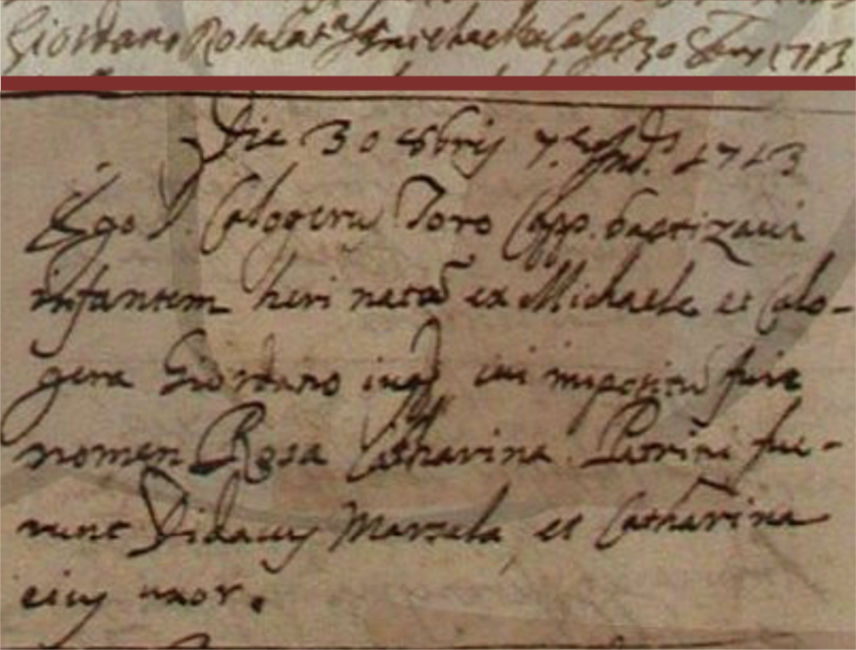 Giordano Rosa Cat.ª di Michaele e Calog.ª 30 8bre 1713
Die 30 8bris 7.ª Ind. 1713
Ego D. Calogerus Toro Capp. baptizavi
infantem heri natã ex Michaele et Calo-
gera Giordano iug. cui impositũ fuit
nomen Rosa Catharina. Patrini fue-
runt Didacus Marsala et Catharina
eius uxor.